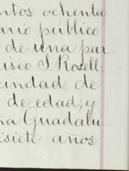 ntos ochenta
nio público
de una par-
isco S. Roell,
cindad de
de edad, y
na Guadalu-
isiete años